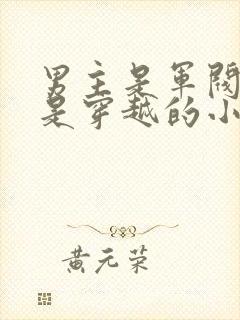 男主是军阀
是穿越的小
黄元荣